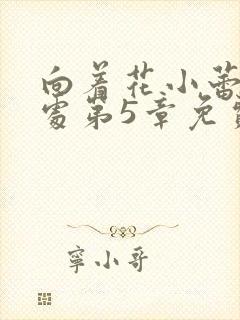 向着花小蕾
处第5章免费
寧小哥